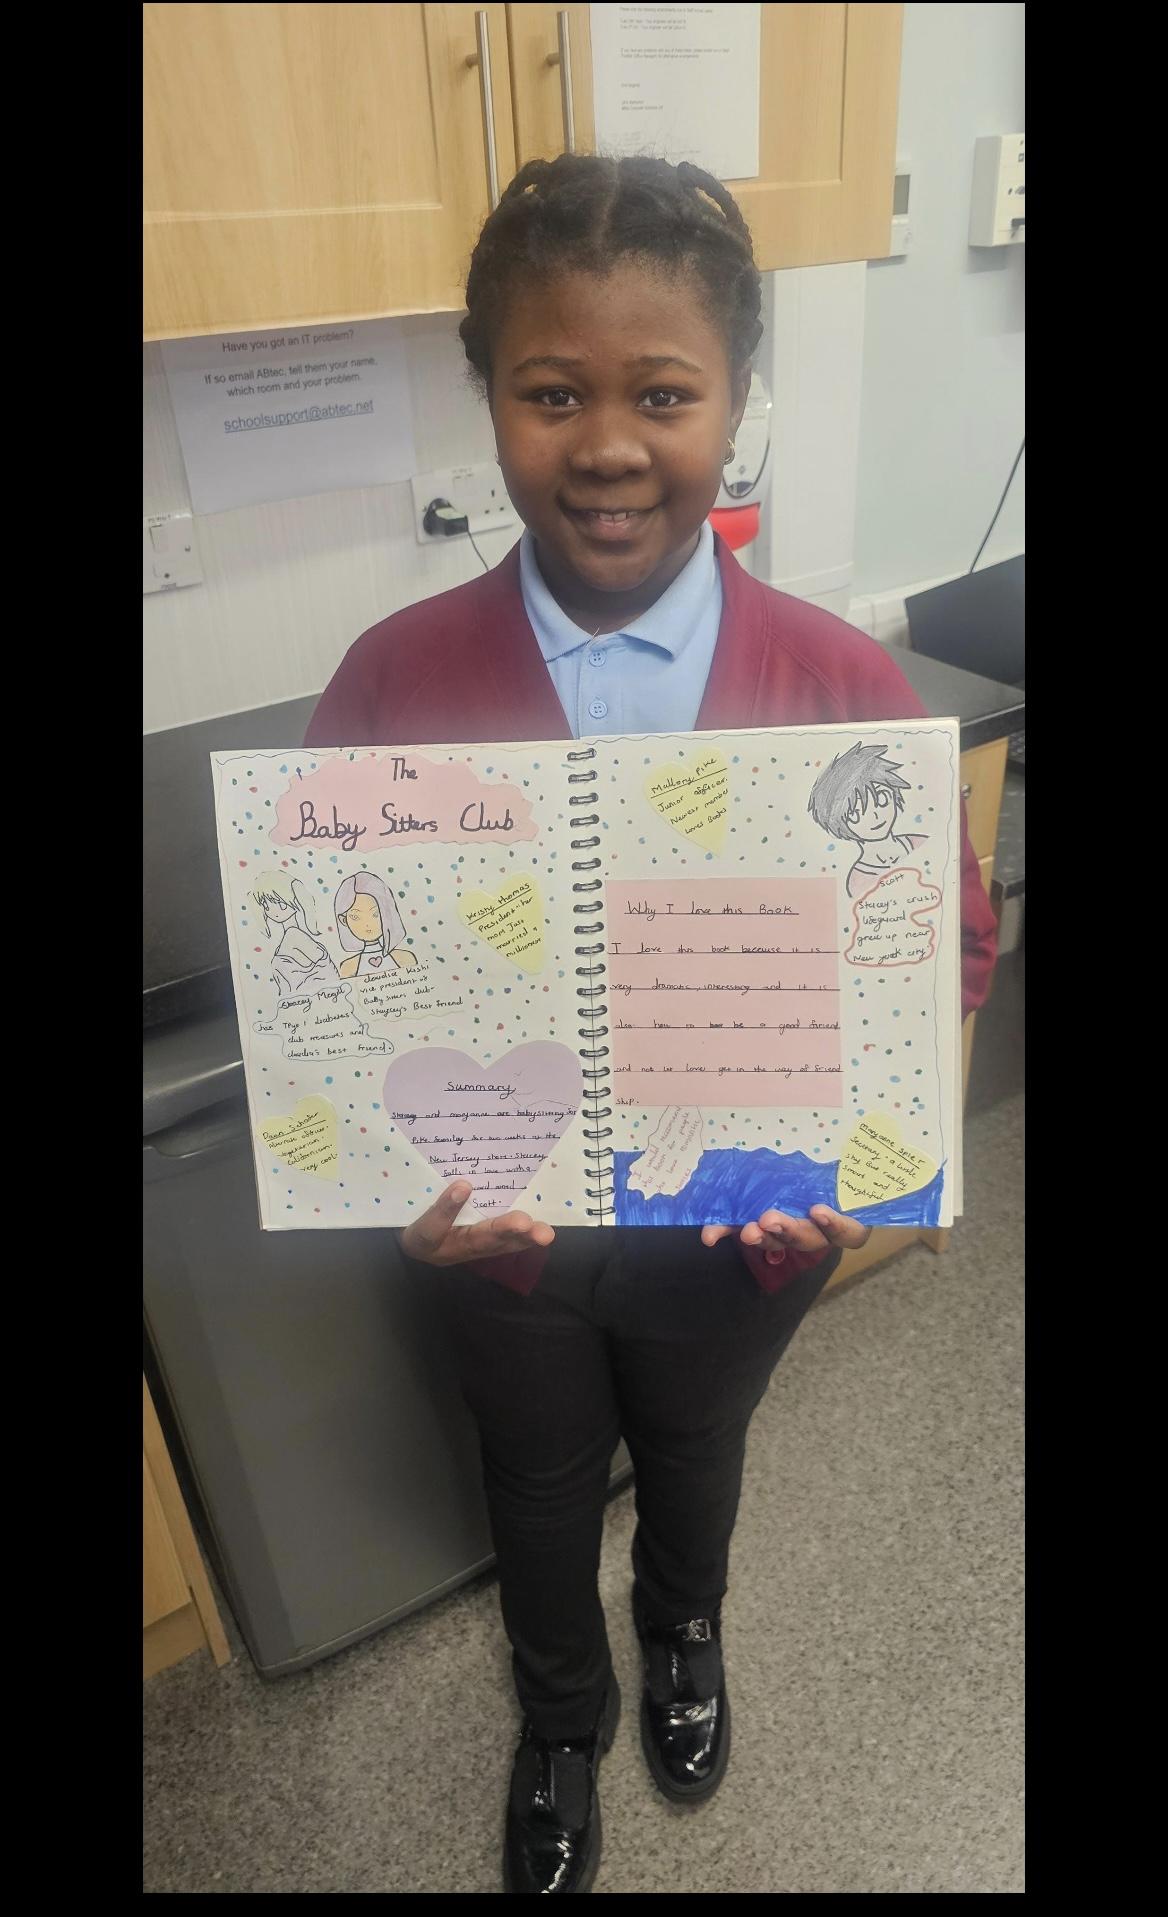 Have you got an IT problem?
If so email ABtec, tell them your name,
which room and your problem.
schoolsupport@abtec.net
The
Baby Sitters Club
Kristy Thomas
President - her
mom Just
married a
millionair
Stacey
has Type 1 diabetes
club treasures and
claudia's best friend.
claudia Kishi
vice president of
Baby sitters club-
Staycey's Best Friend
Summary
Stacey and maryanne are babysitting for
Pike family for two weeks at the
New Jersey shore. Stacey
falls in love with a
Scott.
Dawn
Alternate officer.
Vegetarian.
Californian.
very cool.
Mallory Pike
Junior officer.
Newest member
Loves Books
Scott
Stacey's crush
lifeguard
grew up near
New york city.
Why I love this Book
I love this book because it is
very dramatic, interesting and it is
also how to be a good friend
and not let love get in the way of friend
ship.
I would recommend
this book for people
who love
Maryanne Spier
Secretary. a little
shy But really
smart and
thoughtful.